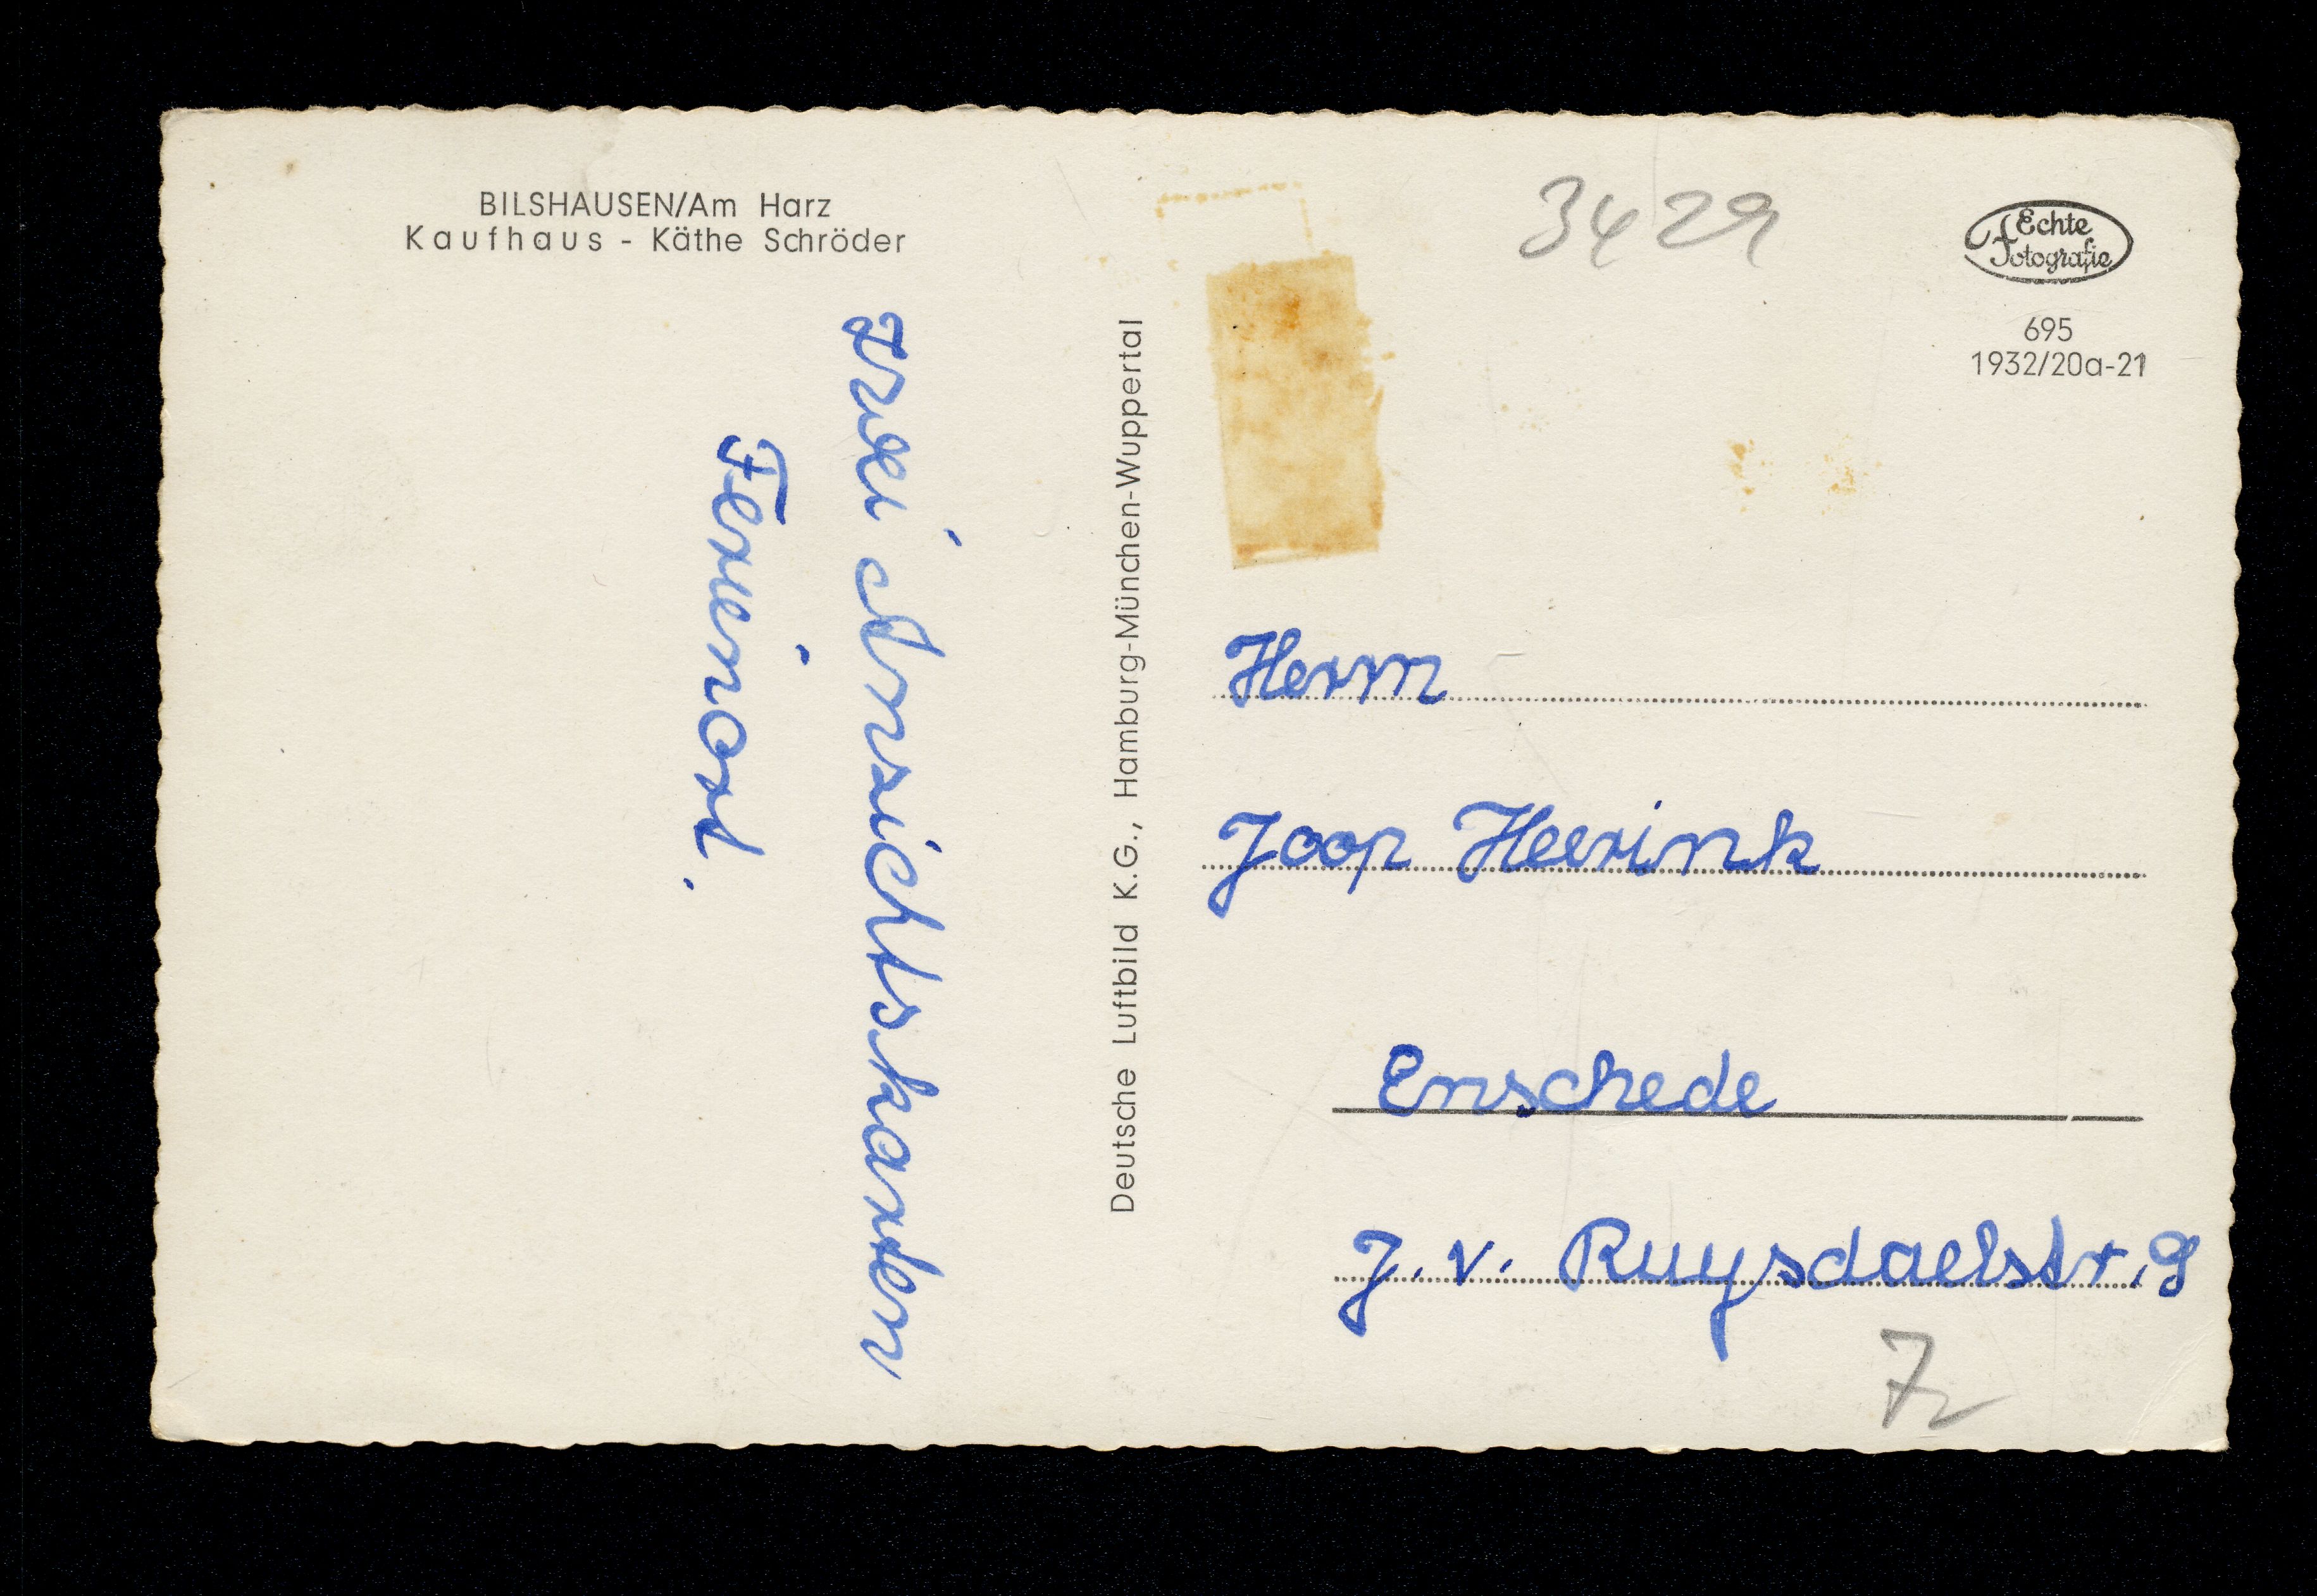 BILSHAUSEN/Am Harz
Kaufhaus - Käthe Schröder
zwei Ansichtskarten
Ferienort.
Deutsche Luftbild K.G., Hamburg-München-Wuppertal
3429
Echte
Fotografie
695
1932/20a-21
Herrn
Joop Heerink
Enschede
J. v. Ruysdaelstr. 9